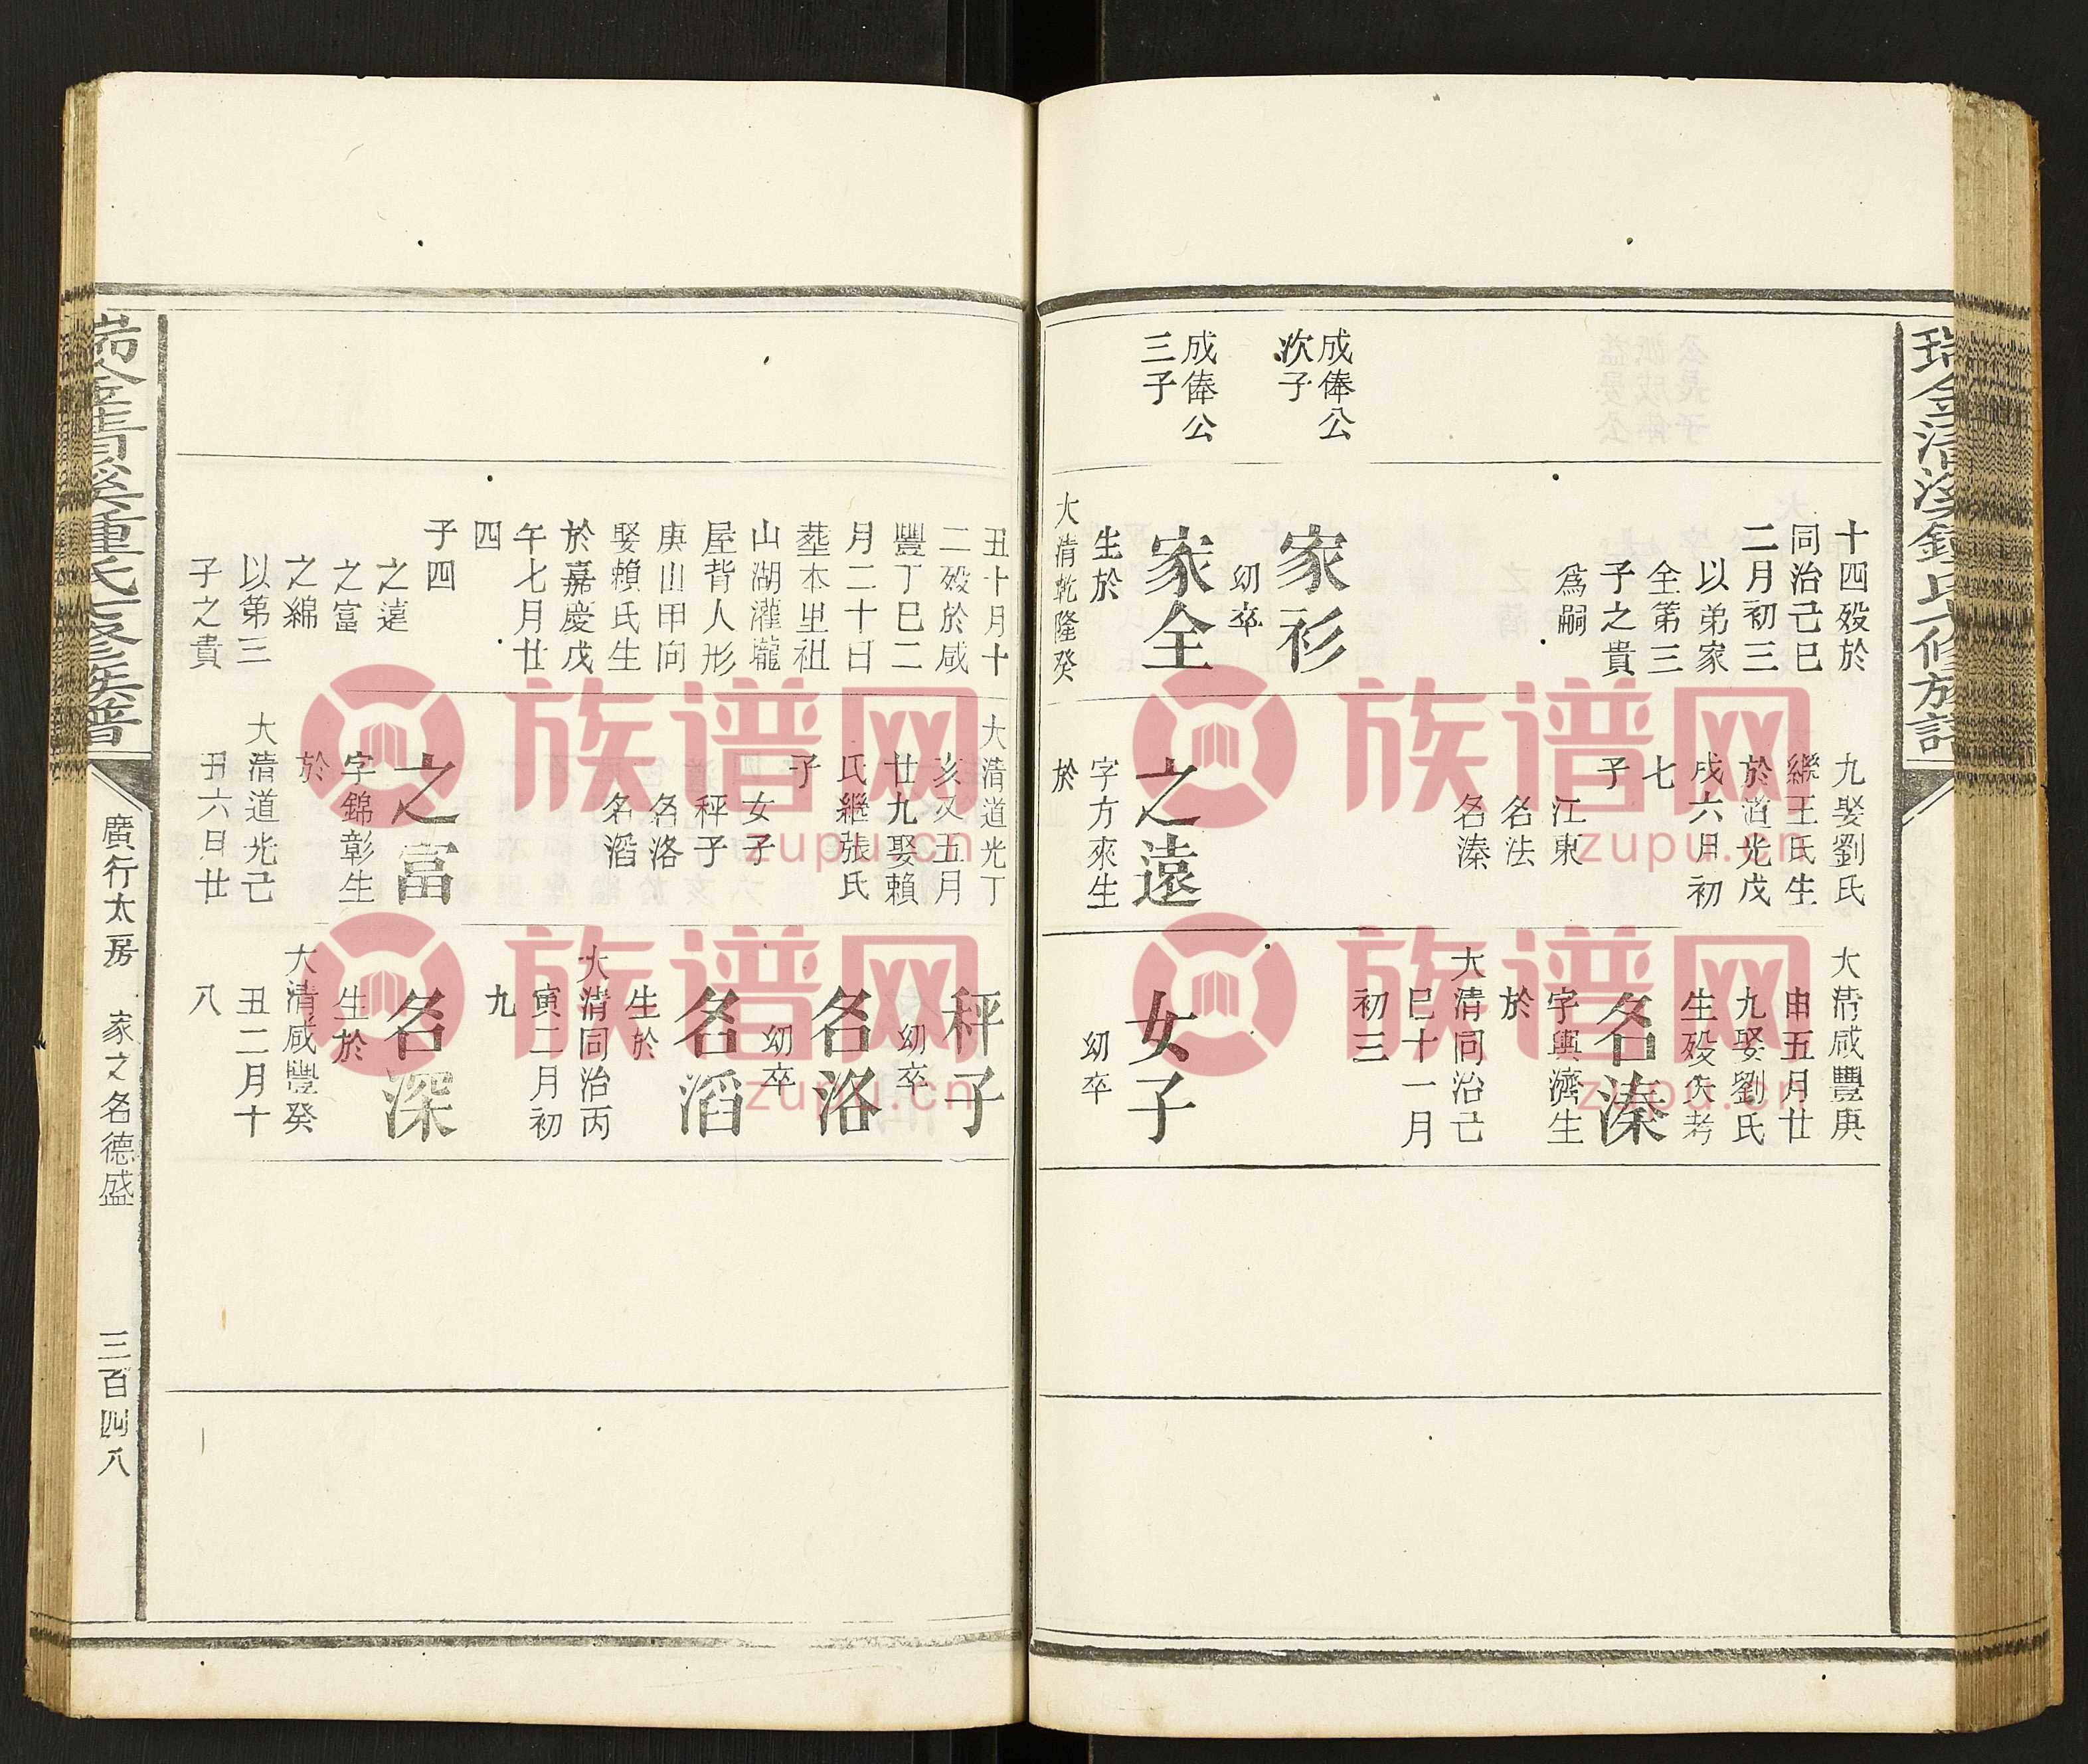 瑞金清溪鍾氏六修族譜
成俸公
次子
成俸公
三子
十四歿於
同治己巳
二月初三
以弟家
全第三
子之貴
爲嗣
家衫
幼卒
家全
生於
大清乾隆癸
九娶劉氏
繼王氏生
於道光戊
戌六月初
七
子
江東
名法
名溱
之遠
字方來生
於
大清咸豐庚
申五月廿
九娶劉氏
生歿失考
名溱
字與濟生
於
大清同治己
巳十一月
初三
女子
幼卒
丑十月十
二歿於咸
豐丁巳二
月二十日
塟本里祖
山湖灌壠
屋背人形
庚山甲向
娶賴氏生
於嘉慶戊
午七月廿
四
子四
之遠
之富
之綿
以第三
子之貴
大清道光丁
亥又五月
廿九娶賴
氏繼張氏
子
女子
秤子
名洛
名滔
之富
字錦彰生
於
大清道光己
丑六月廿
秤子
幼卒
名洛
幼卒
名滔
生於
大清同治丙
寅二月初
九
名深
生於
大清咸豐癸
丑二月十
八
瑞金清溪鍾氏六修族譜
廣行太房
家之名德盛
三百四八
族谱网
zupu.cn
族谱网
zupu.cn
族谱网
zupu.cn
族谱网
zupu.cn